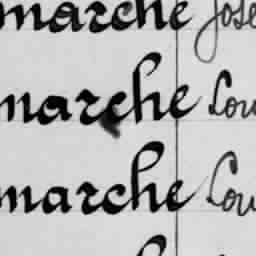 marche Jose
marche Lou
marche Lou